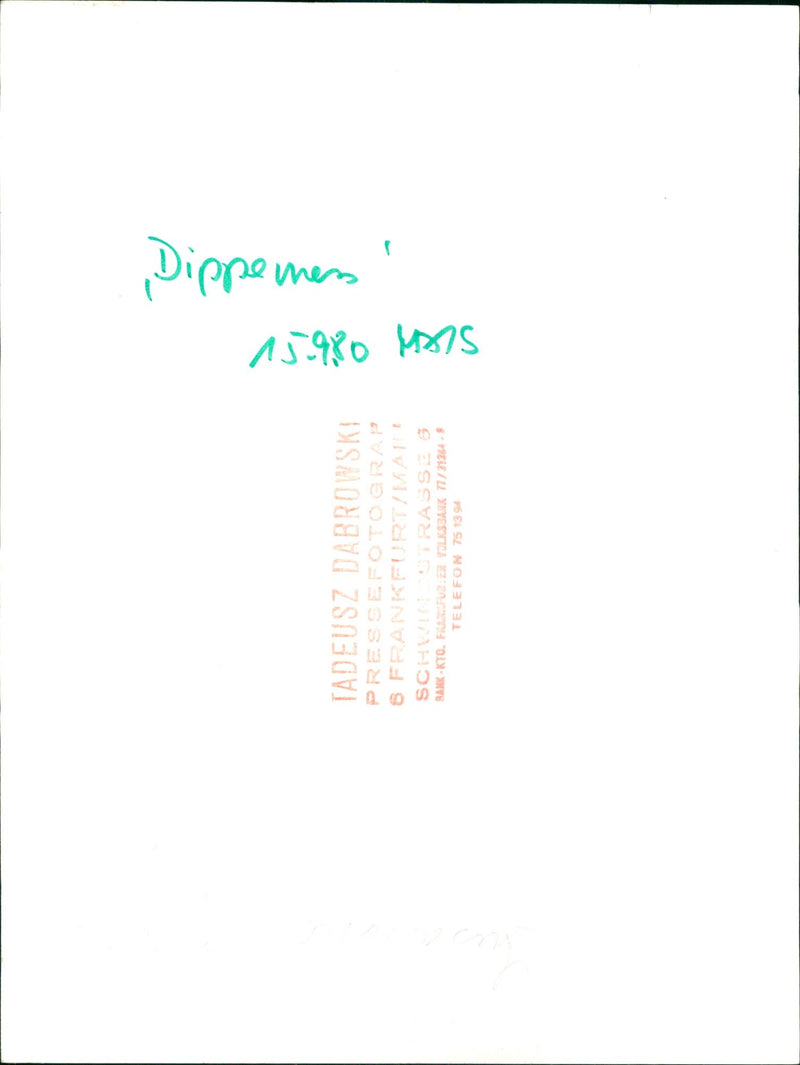 ‚Dippemess'
15.9.80
TADEUSZ DABROWSKI
PRESSEFOTOGRAF
6 FRANKFURT/MAIN
SCHWINDSTRASSE 6
BANK-KTO. FRANKFURTER VOLKSBANK 77/31364-8
TELEFON 75 13 94